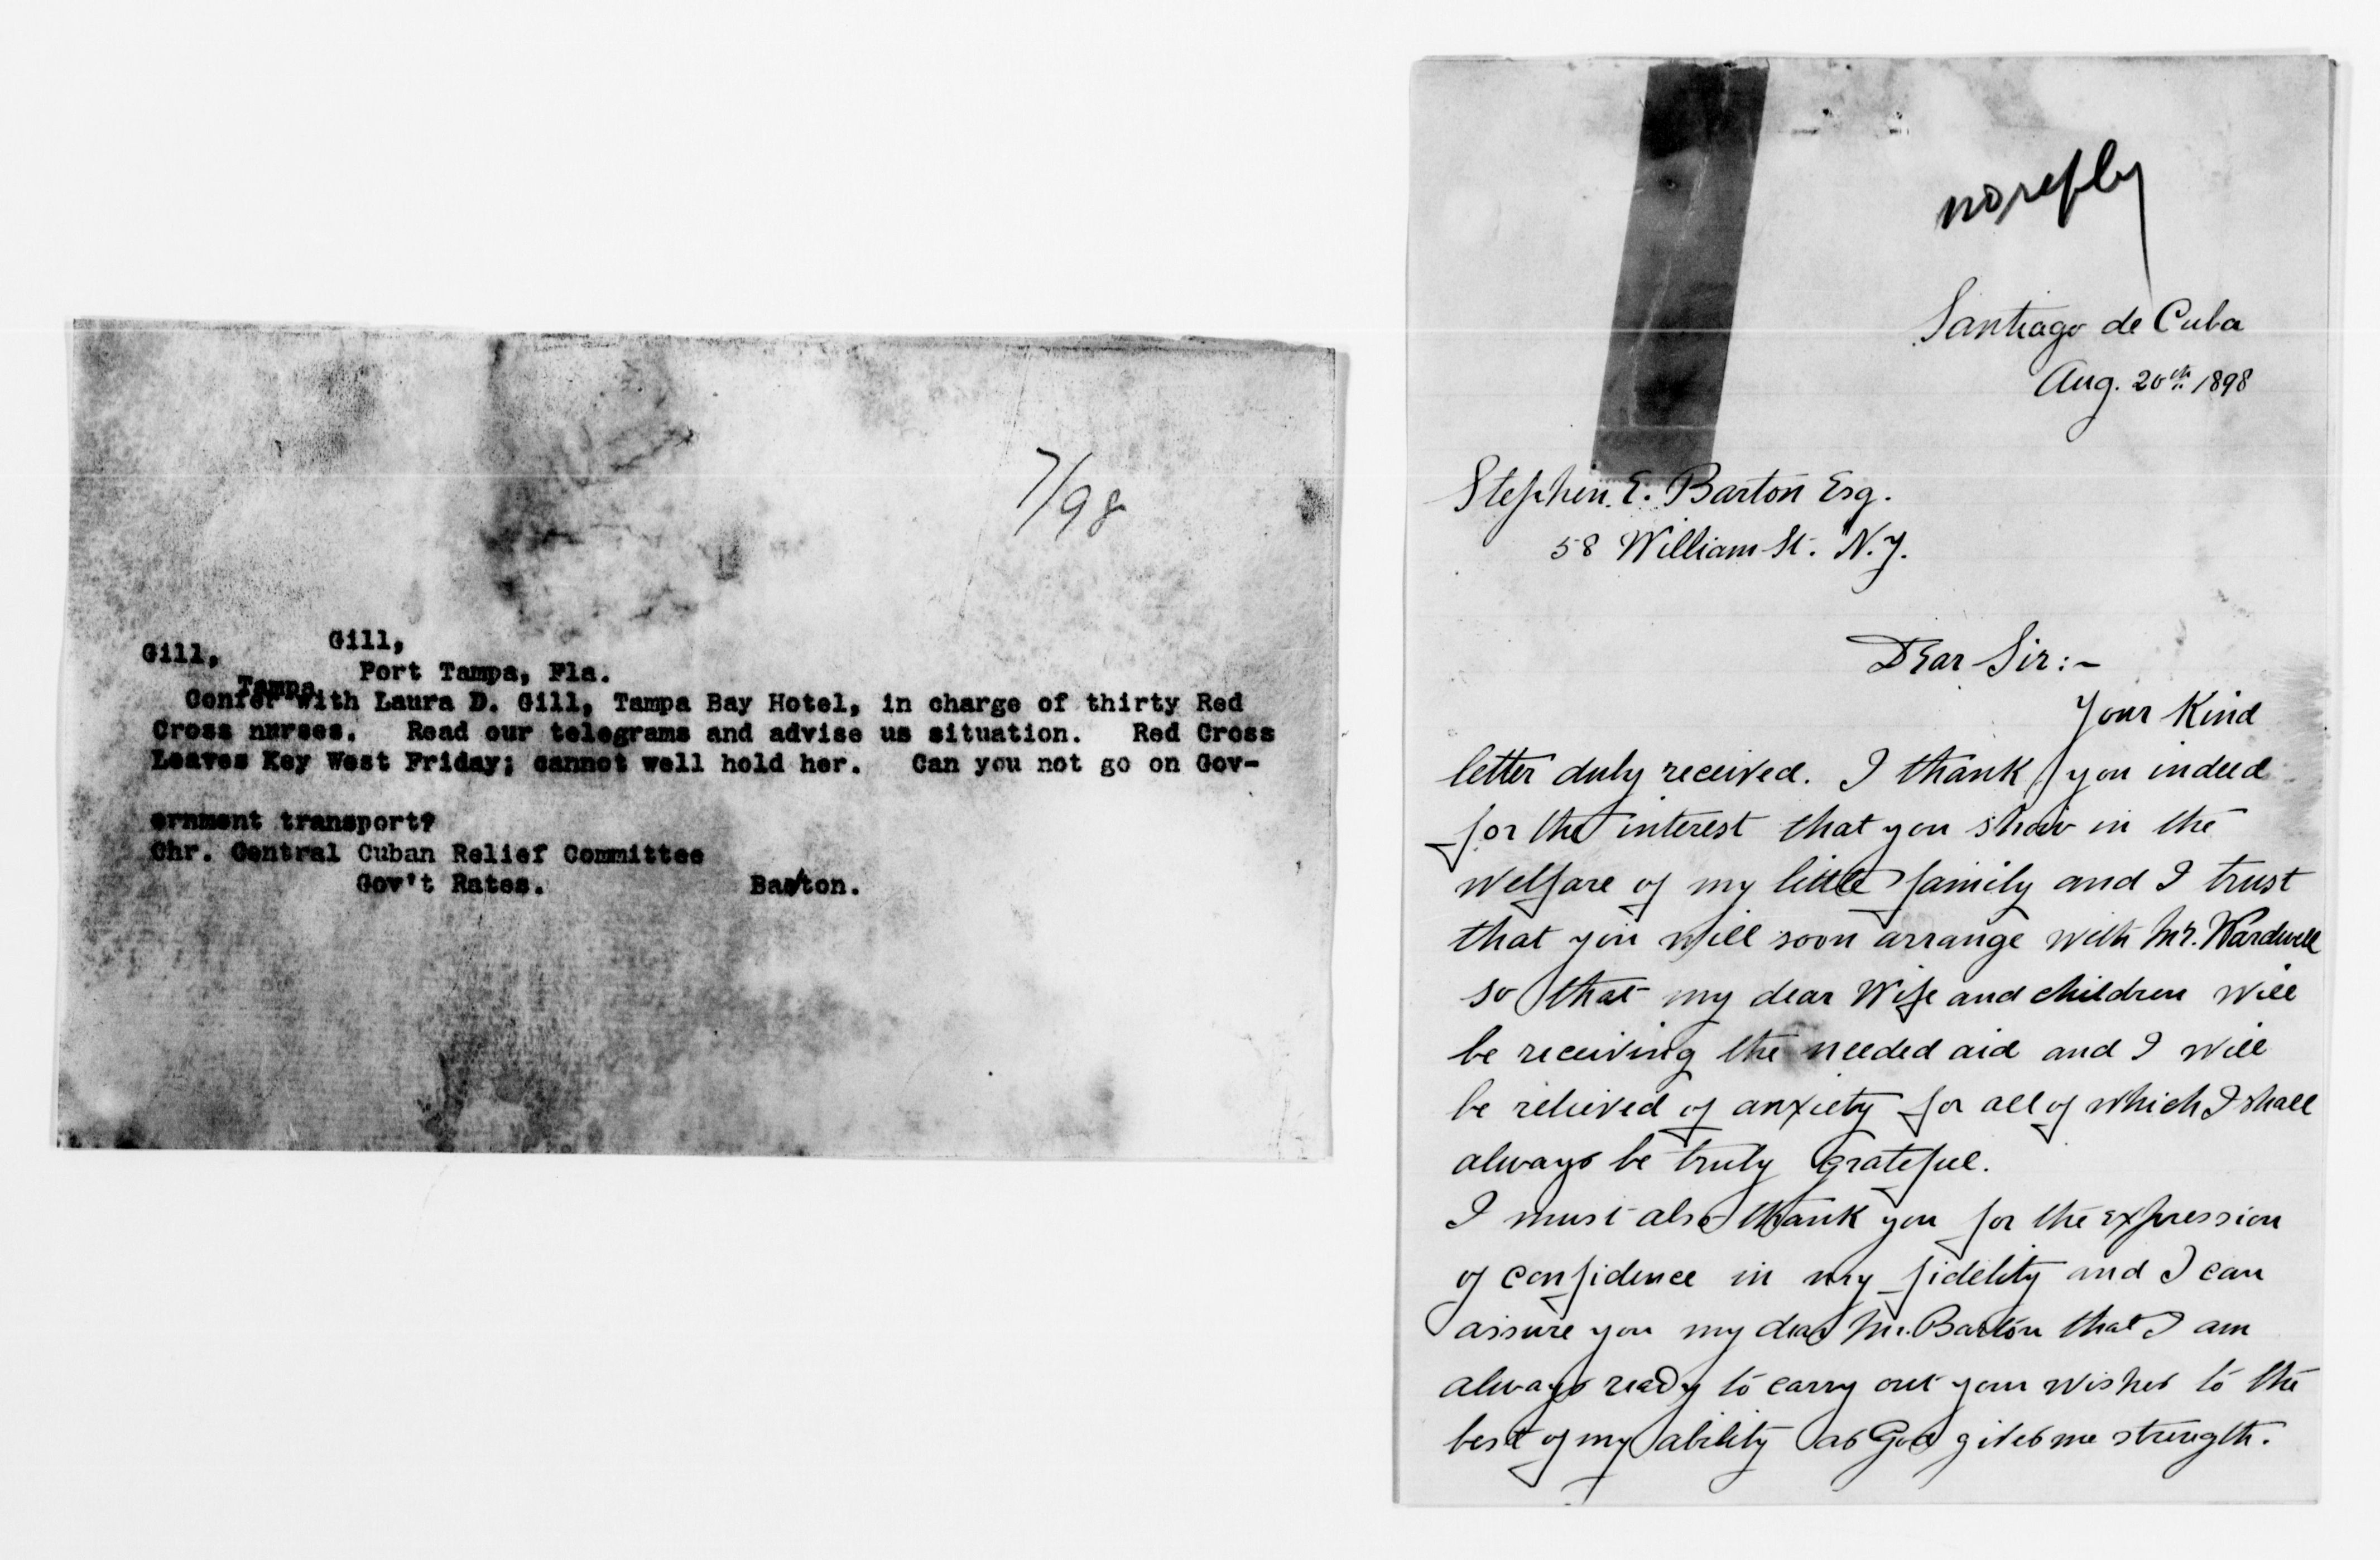 7/98
Gill,
Gill,
Port Tampa, Fla.
Tampa
Confer with Laura D. Gill, Tampa Bay Hotel, in charge of thirty Red
Cross nurses. Read our telegrams and advise us situation. Red Cross
Leaves Key West Friday; cannot well hold her. Can you not go on Gov-
ernment transport?
Chr. Central Cuban Relief Committee
Gov't Rates. Barton.
no reply
Santiago de Cuba
Aug. 20th 1898
Stephen E. Barton Esq.
58 William St. N.Y.
Dear Sir:-
Your Kind
letter duly received. I thank you indeed
for the interest that you show in the
welfare of my little family and I trust
that you will soon arrange with Mr. Wardwell
so that my dear Wife and children will
be receiving the needed aid and I will
be relieved of anxiety for all of which I shall
always be truly grateful.
I must also thank you for the expression
of confidence in my fidelity and I can
assure you my dear Mr. Barton that I am
always ready to carry out your wishes to the
best of my ability as God gives me strength.